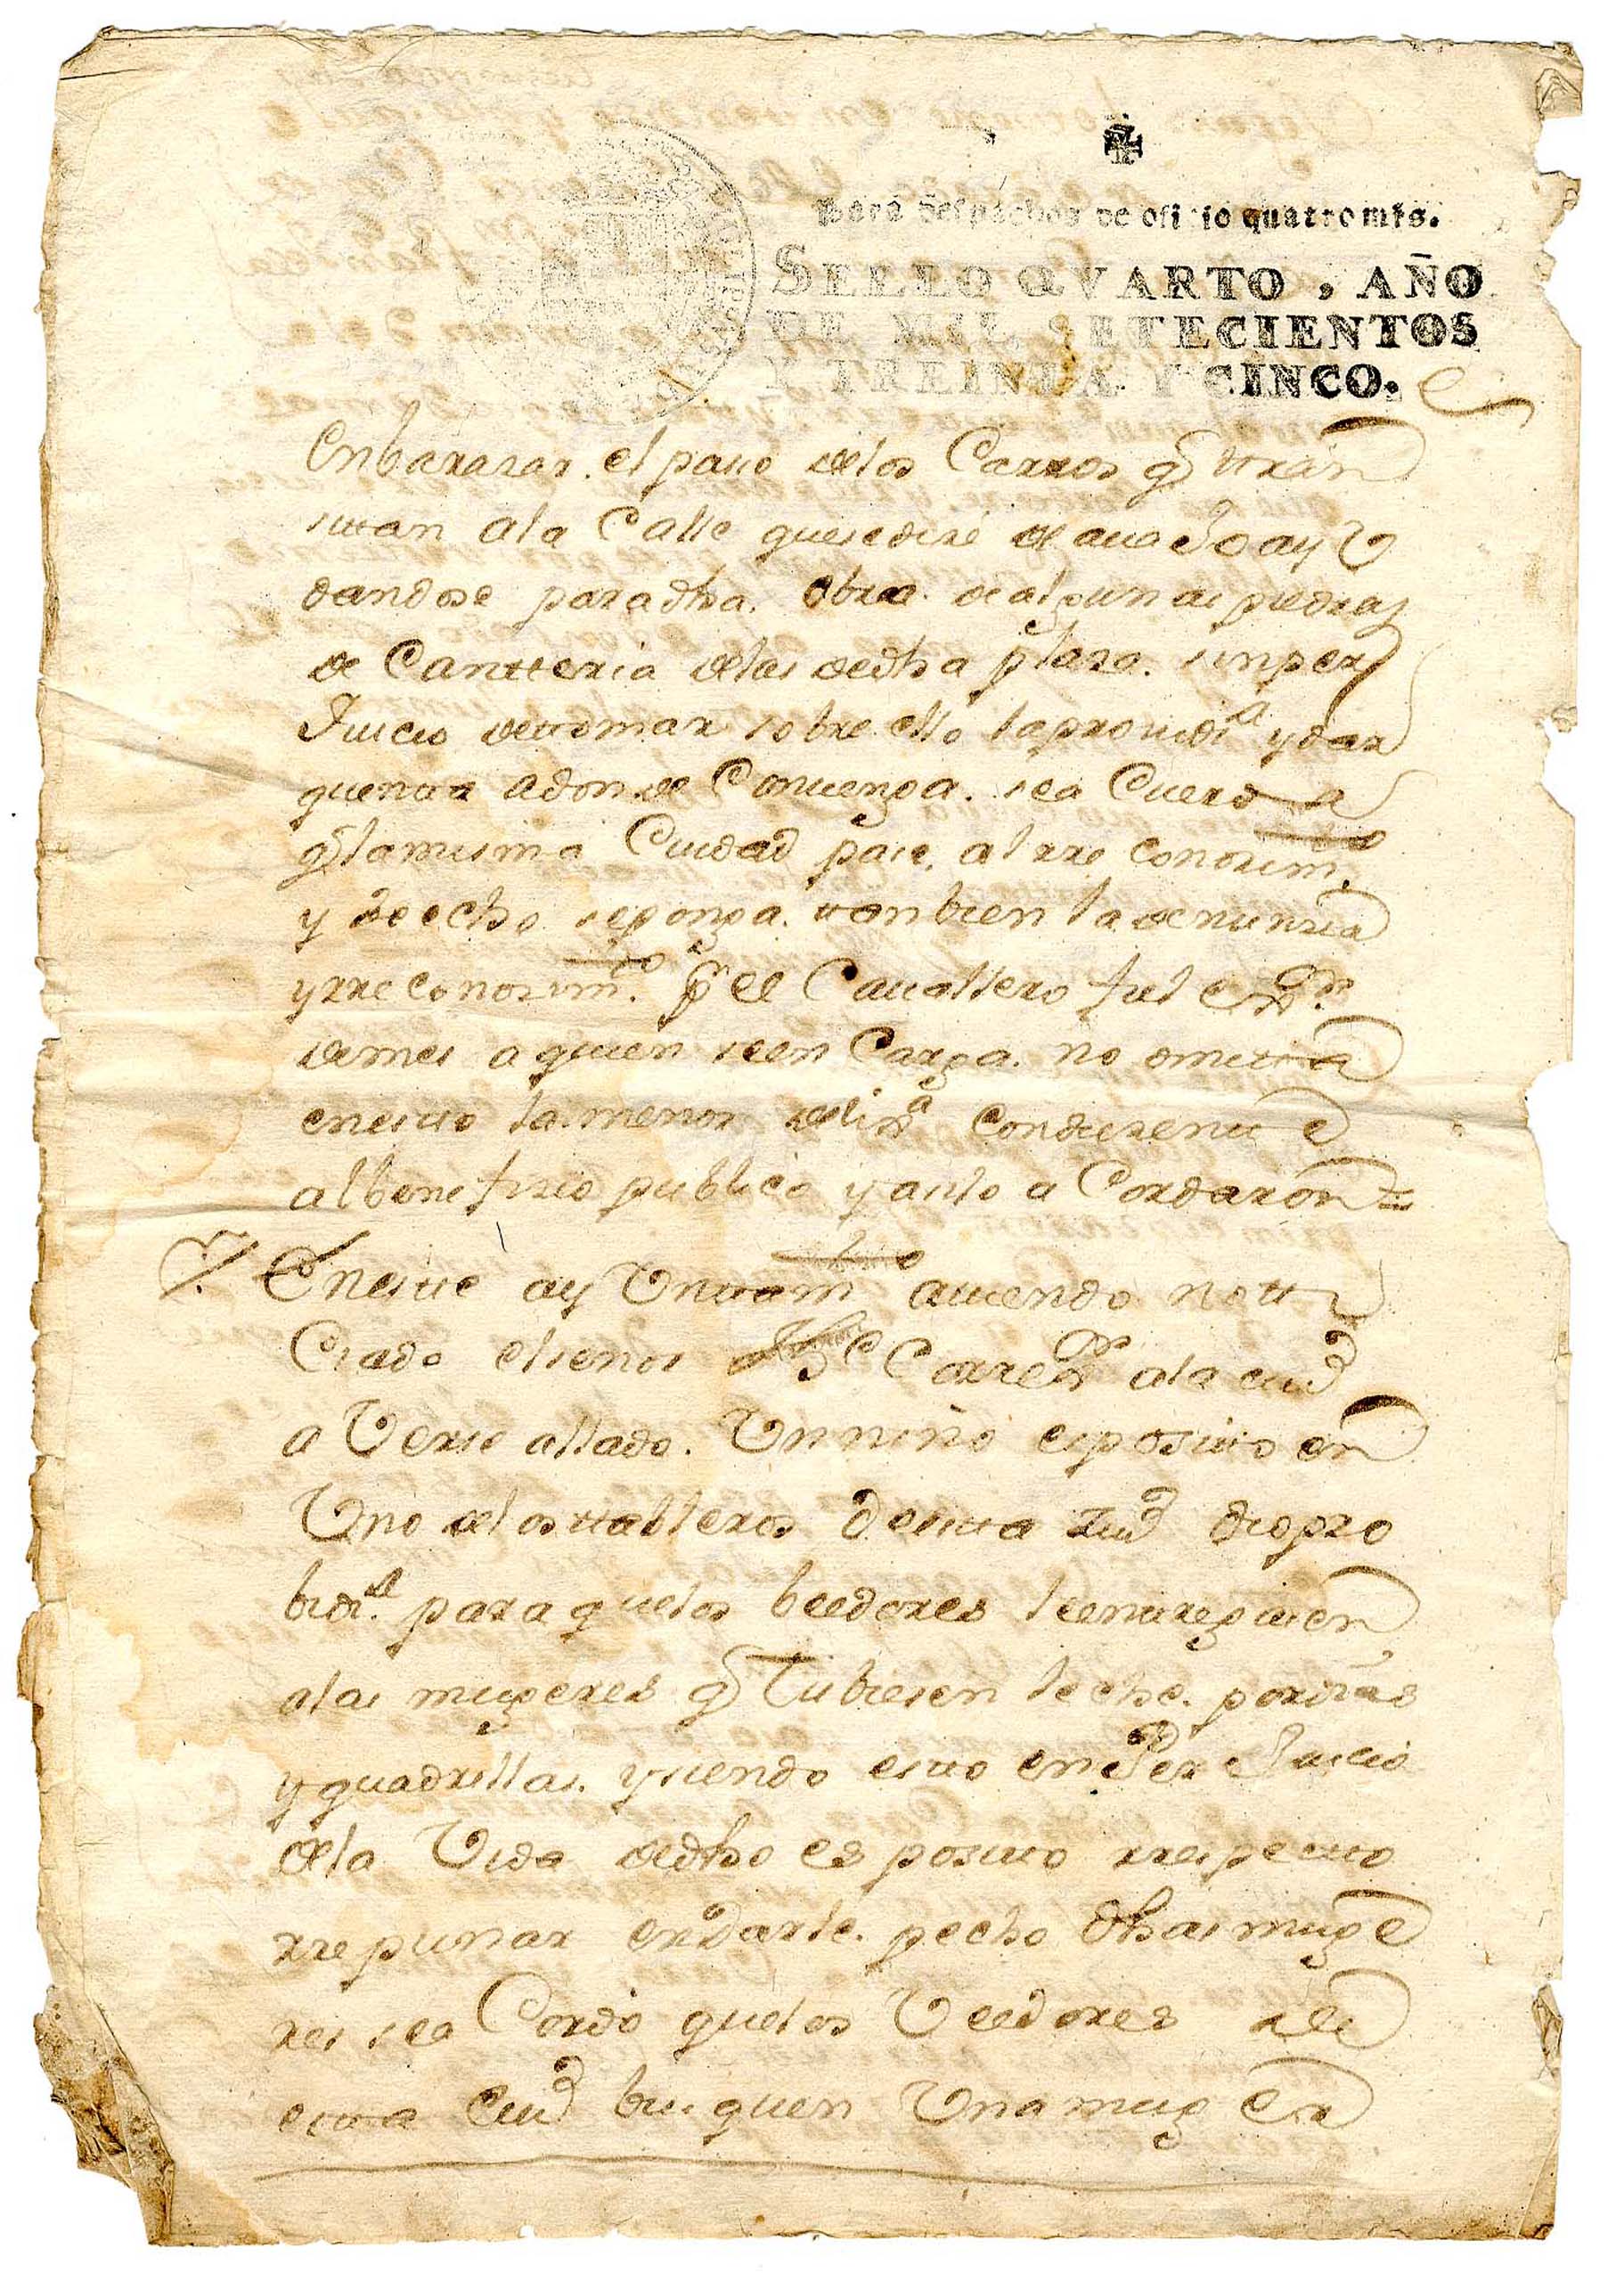 Para despachos de oficio quatro mrs.
SELLO QVARTO, AÑO
DE MIL SETECIENTOS
Y TREINTA Y CINCO.
Enbarasar el paso de los Carros q tran
sitan a la Calle que se dise de auaJo ayu
dandose para dha. obra de algunas piedras
de Cantteria de las de dha plasa. sin per
Juicio de ttomar sobre ello la prouida y dar
quentta adonde Conuenga. se a Cuerda
q la misma Ciudad pase al rreconosimto
y de echo se ponga. ttanbien la denunsia
y rreconosimto. pr el Cauallero fiel
de mes a quien se en Carga. no omitta
en estto la menor delixa Condusentte
al benefisio publico y asi lo a Cordaron=
En estte ay Unttamto auiendo notti
Ciado el senor Corregr a la ciud
a Verse allado. Un niño esposito en
Uno de los ttableros de estta ziud dio pro
bida. para que los beedores le entregasen
a las mugeres q Tubiesen leche. por dias
y quadrillas. y siendo estto en Per Juicio
de la Vida de dho es positto rrespectto
rrepunar en darle. pecho dhas muge
res se a Cordo que los Veedores de
estta Ciud bus quen Una muger